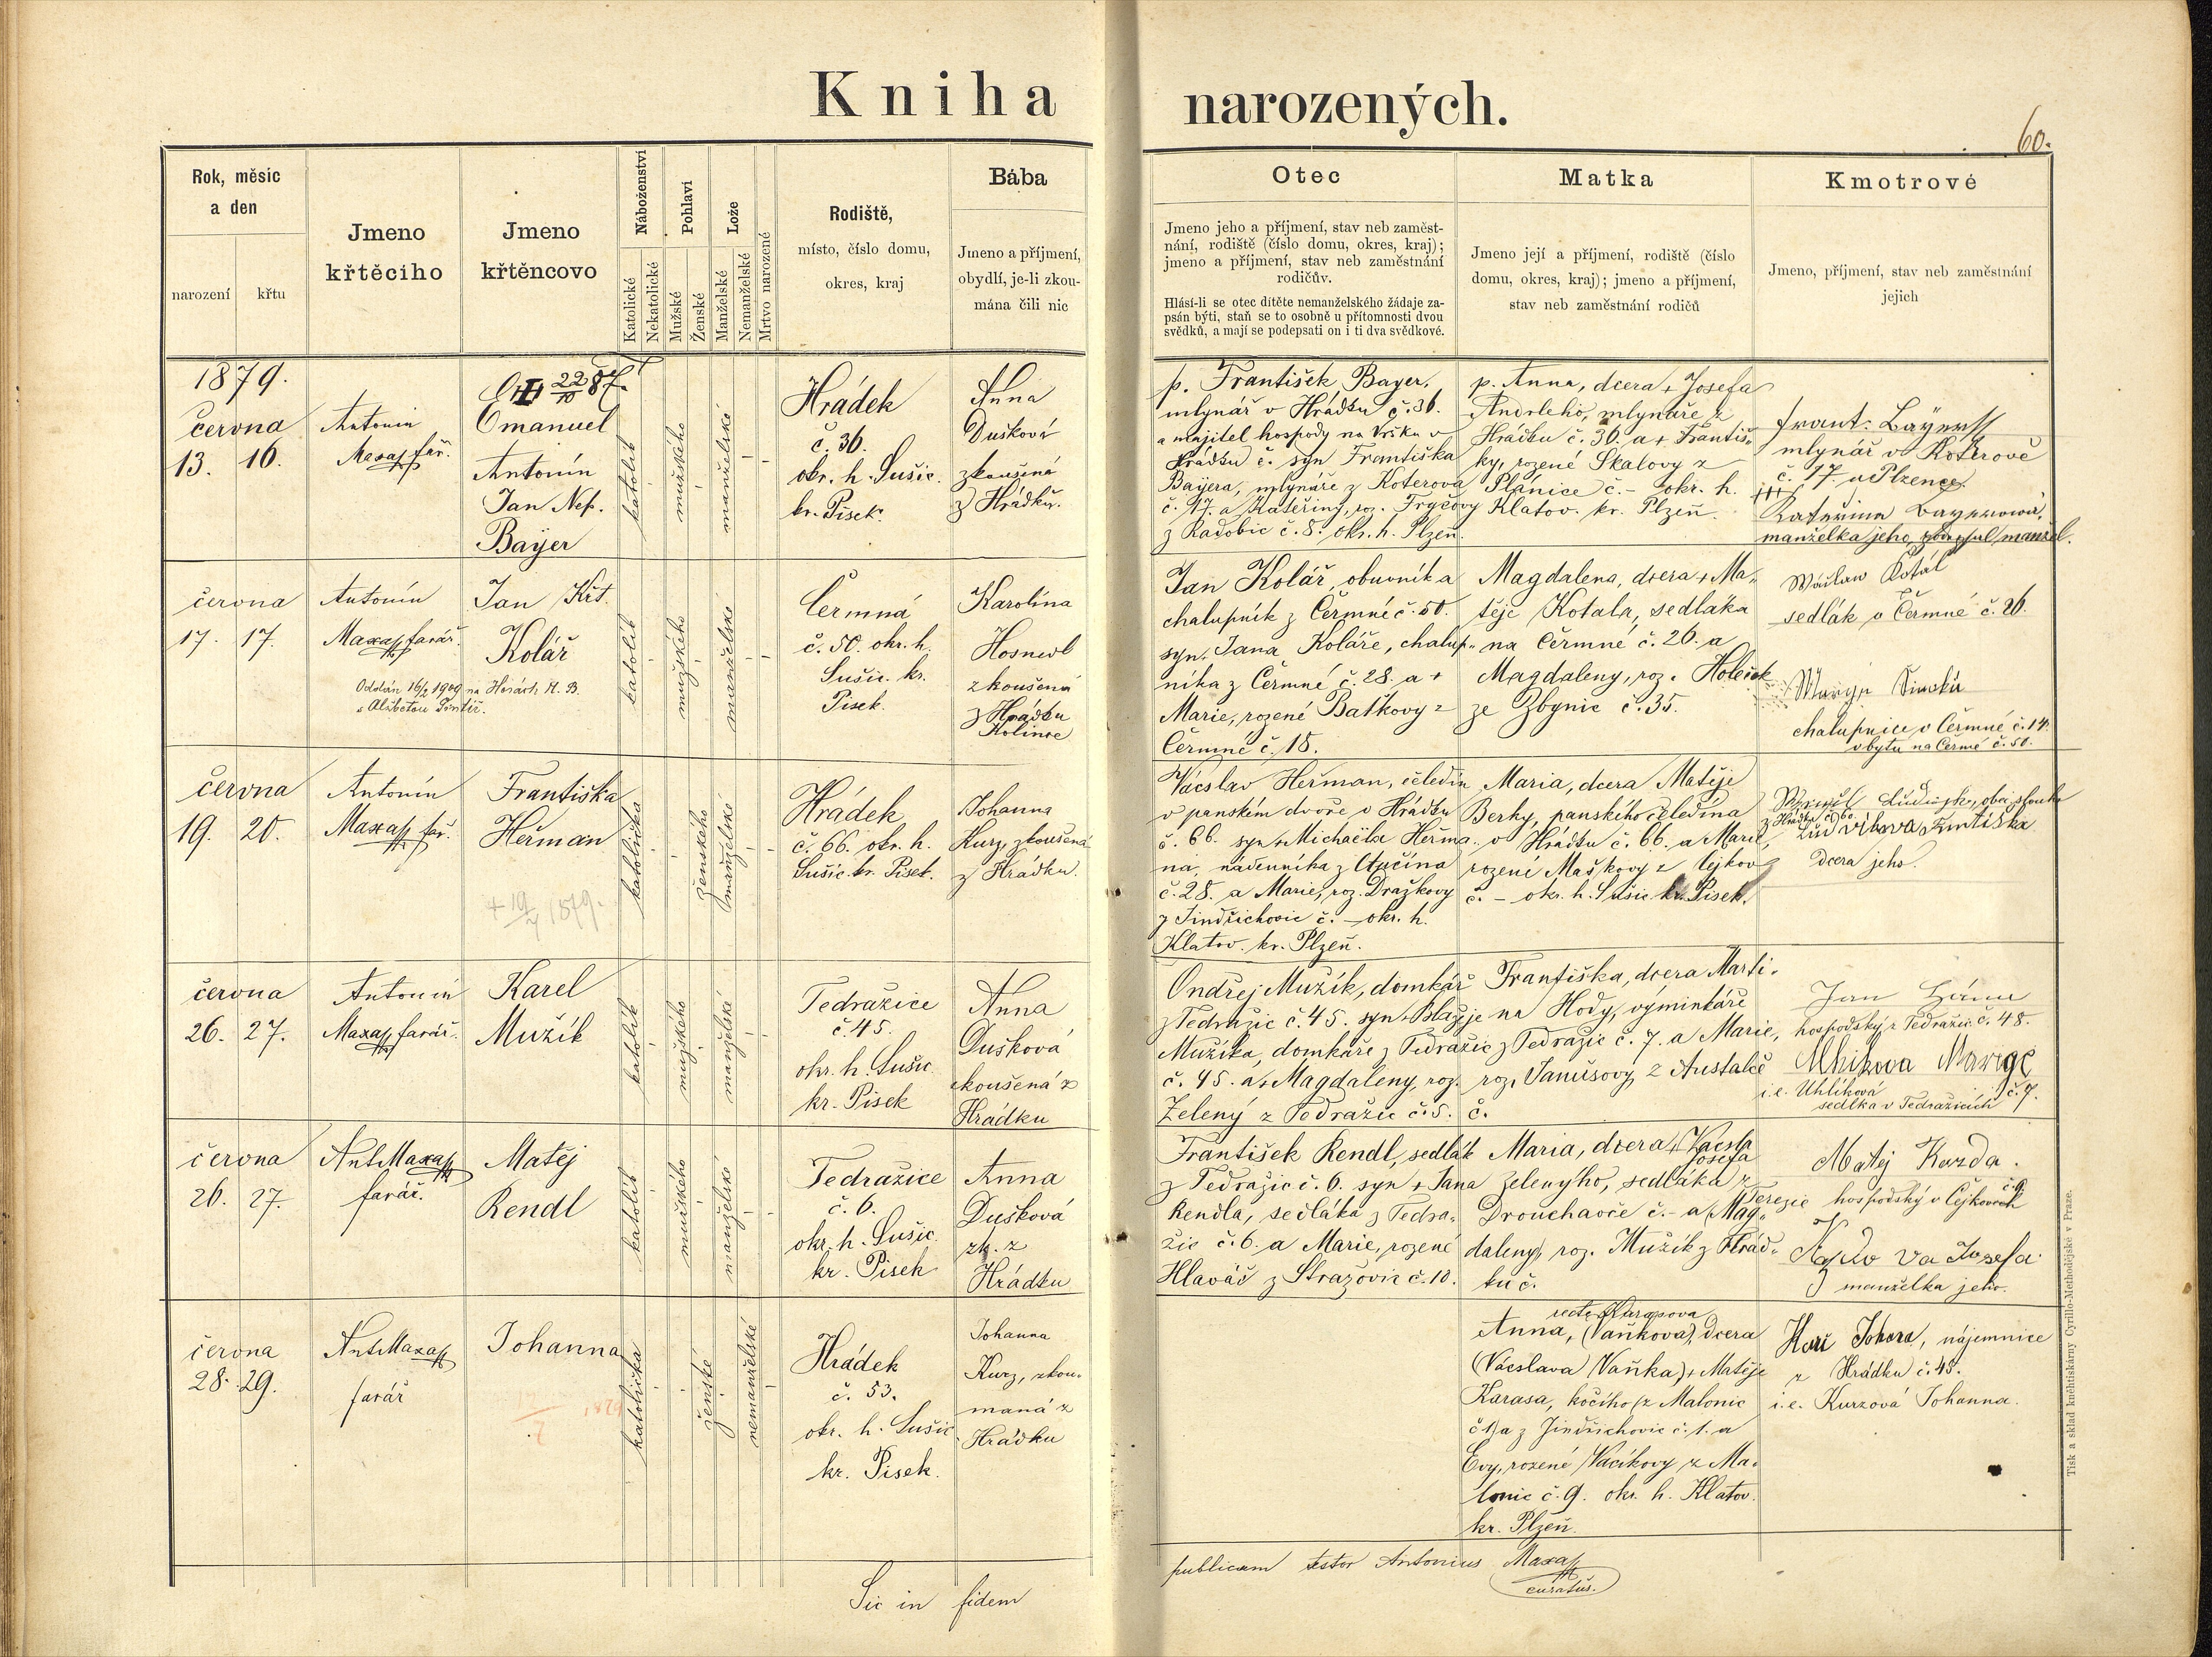 Kniha narozených.
60.
Rok, měsíc
a den
narození
křtu
Jmeno
křtěcího
Jmeno
křtěncovo
Náboženství
Katolické
Nekatolické
Pohlaví
Mužské
Ženské
Lože
Manželské
Nemanželské
Mrtvo narozené
Rodiště,
místo, číslo domu,
okres, kraj
Bába
Jmeno a příjmení,
obydlí, je-li zkou-
mána čili nic
Otec
Jmeno jeho a příjmení, stav neb zaměst-
nání, rodiště (číslo domu, okres, kraj);
jmeno a příjmení, stav neb zaměstnání
rodičův.
Hlásí-li se otec dítěte nemanželského žádaje za-
psán býti, staň se to osobně u přítomnosti dvou
svědků, a mají se podepsati on i ti dva svědkové.
Matka
Jmeno její a příjmení, rodiště (číslo
domu, okres, kraj); jmeno a příjmení,
stav neb zaměstnání rodičů
Kmotrové
Jmeno, příjmení, stav neb zaměstnání
jejich
1879.
června
13. 16.
Antonín
Maxa far.
22/10 87.
Emanuel
Antonín
Jan Nep.
Bayer
katolík
mužského
manželské
Hrádek
č. 36.
okr. h. Sušic.
kr. Písek.
Anna
Dušková
zkoušená
z Hrádku.
p. František Bayer,
mlynář v Hrádku č. 36.
a majitel hospody na Vršku v
Hrádku č. syn Františka
Bayera, mlynáře z Koterova
č. 17. a Kateřiny, roz. Tryčovy
z Radobic č. 8. okr. h. Plzeň.
p. Anna, dcera + Josefa
Andrleho, mlynáře z
Hrádku č. 36. a + Františ-
ky, rozené Skalovy z
Plánice č. – okr. h.
Klatov. kr. Plzeň.
Frant. Bayer
mlynář v Koterově
č. 17. u Plzence
+++
Kateřina Bayerowá,
manželka jeho, manžel.
června
17. 17.
Antonín
Maxa farář.
Jan Křt.
Kolář
Oddán 16/2 1909 na Horách M. B.
s Alžbetou
katolík
mužského
manželské
Čermná
č. 50. okr. h.
Sušic. kr.
Písek.
Karolína
Hosnedl
zkoušená
z Hrádku
Kolince
Jan Kolář, obuvník a
chalupník z Čermné č. 50.
syn Jana Koláře, chalup-
níka z Čermné č. 28. a +
Marie, rozené Baťkovy z
Čermné č. 18.
Magdalena, dcera + Ma-
těje Kotala, sedláka
na Čermné č. 26. a
Magdaleny, roz. Holeček
ze Zbynic č. 35.
Wáclaw Kotál
sedlák v Čermné č. 26.
+++
chalupnice v Čermné č. 14.
v bytu na Čermé č. 50.
června
19. 20.
Antonín
Maxa far.
Františka
Heřman
+ 19/7 1879.
katolička
ženského
manželské
Hrádek
č. 66. okr. h.
Sušic. kr. Písek.
Johanna
Kurz, zkoušená
z Hrádku.
Vácslav Heřman, čeledín
v panském dvoře v Hrádku
č. 66. syn + Michaëla Heřma-
na, nádenníka z Otučína
č. 28. a Marie, roz. Dražkovy
z Jindřichovic č. – okr. h.
Klatov. kr. Plzeň.
Maria, dcera Matěje
Berky, panského čeledína
v Hrádku č. 66. a Marie,
rozené Maškovy z Čejkov
č. – okr. h. Sušic kr. Písek.
z Hrádku č. 60
Františka
dcera jeho.
června
26. 27.
Antonín
Maxa farář.
Karel
Mužík
katolík
mužského
manželské
Tedražice
č. 45.
okr. h. Sušic
kr. Písek
Anna
Dušková
zkoušená z
Hrádku
Ondřej Mužík, domkář
z Tedražic č. 45. syn + Blažeje
Mužíka, domkáře z Tedražic
č. 45. a + Magdaleny, roz.
Zelený z Tedražic č. 5.
Františka, dcera Marti-
na Hody, výminkáře
z Tedražic č. 7. a Marie,
roz. Janušovy z Austaleč
č.
Jan
hospodský z Tedražic č. 48.
Uhlíkova Marige
i. e. Uhlíková
sedlka v Tedražicích č. 7.
června
26. 27.
Ant. Maxa
farář.
Matěj
Rendl
katolík
mužského
manželské
Tedražice
č. 6.
okr. h. Sušic.
kr. Písek
Anna
Dušková
zk. z
Hrádku
František Rendl, sedlák
z Tedražic č. 6. syn + Jana
Rendla, sedláka z Tedra-
žic č. 6. a Marie, rozené
Hlaváč z Strazovic č. 10.
Maria, dcera + (Vácsla
Josefa
Zelenýho, sedláka z
Drouhavče č. – a (Mag-
Terezie
daleny) roz. Mužík z Hrád-
ku č.
Matěj Kazda.
hospodský v Čejkovech č. 9.
Kazdova Josefa
manželka jeho.
června
28. 29.
Ant. Maxa
farář
Johanna
katolička
ženské
nemanželské
Hrádek
č. 53.
okr. h. Sušic
kr. Písek.
Johanna
Kurz, zkou-
maná z
Hrádku
recte Karasova
Anna, (Vaňková), dcera
(Vácslava Vaňka) + Matěje
Karasa, kočího (z Malonic
č. 1) a z Jindřichovic č. 1. a
Evy, rozené Vacíkovy z Ma-
lonic č. 9. okr. h. Klatov.
kr. Plzeň.
Johana, nájemnice
z Hrádku č. 45.
i. e. Kurzová Johanna.
Sic in fidem publicam testor Antonius Maxa
curatus.
Tisk a sklad knihtiskárny Cyrillo-Methodějské v Praze.